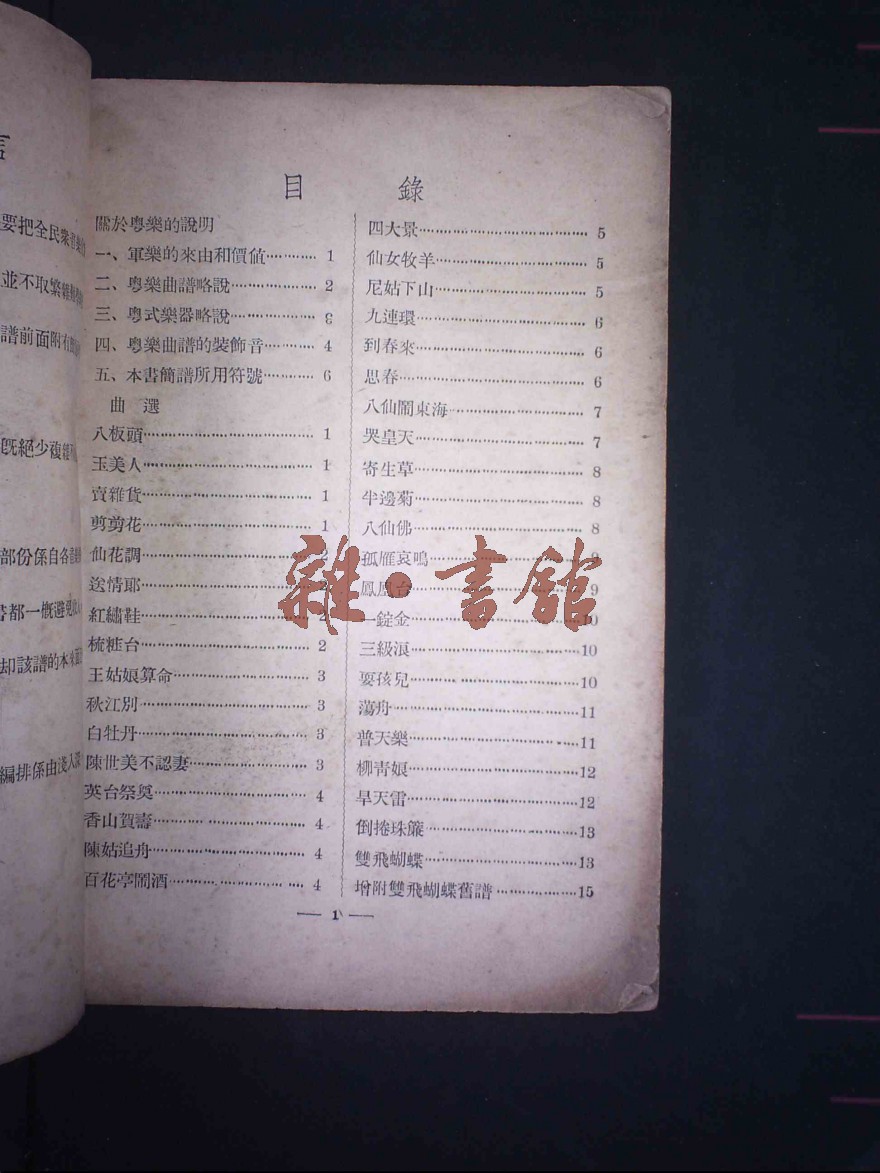 目錄
關於粵樂的說明
一、軍樂的來由和價值………… 1
二、粵樂曲譜略說………… 2
三、粵式樂器略說………… 3
四、粵樂曲譜的裝飾音………… 4
五、本書簡譜所用符號………… 6
曲選
八板頭………… 1
玉美人………… 1
賣雜貨………… 1
剪剪花………… 1
仙花調………… 2
送情郎………… 2
紅繡鞋………… 2
梳粧台………… 2
王姑娘算命………… 3
秋江別………… 3
白牡丹………… 3
陳世美不認妻………… 3
英台祭奠………… 4
香山賀壽………… 4
陳姑追舟………… 4
百花亭鬧酒………… 4
四大景………… 5
仙女牧羊………… 5
尼姑下山………… 5
九連環………… 6
到春來………… 6
思春………… 6
八仙鬧東海………… 7
哭皇天………… 7
寄生草………… 8
半邊菊………… 8
八仙佛………… 8
孤雁哀鳴………… 9
鳳凰台………… 9
一錠金………… 10
三級浪………… 10
耍孩兒………… 10
蕩舟………… 11
普天樂………… 11
柳青娘………… 12
旱天雷………… 12
倒捲珠簾………… 13
雙飛蝴蝶………… 13
增附雙飛蝴蝶舊譜………… 15
— 1 —
雜·書館
要把全民衆
並不取繁
譜前面附有
旣絕少複雜
部份係自各
都一慨避
却該譜的本來面
編排係由淺入深